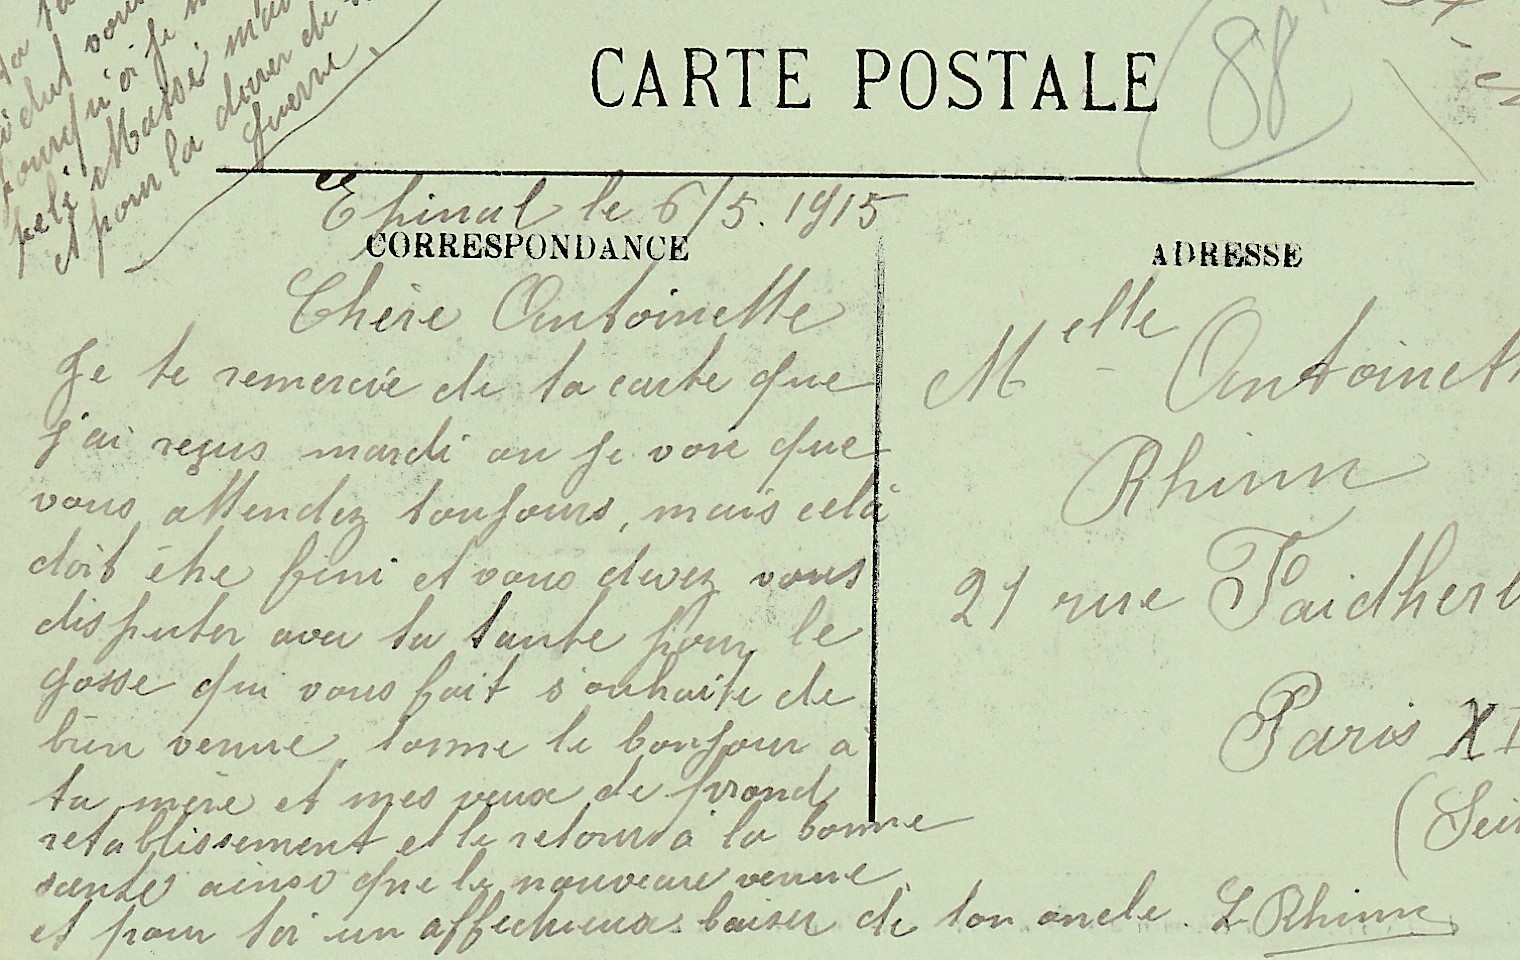 CARTE POSTALE
88
Epinal le 6/5. 1915
CORRESPONDANCE
Chère Antoinette
Je te remercie de ta carte que
j'ai reçus mardi ou je vois que
vous attendez toujours, mais celà
doit être fini et vous devez vous
disputer avec ta tante pour le
gosse qui vous fait s'ouhaite de
bien venue, donne le bonjour a
ta mère et mes veux de prond
retablissement et le retours à la bonne
sante ainsi que le nouveau venue
et pour toi un affectueux baiser de ton oncle. L. Rhinn
ADRESSE
Melle Antoinett
Rhinn
21 rue Faidherb
Paris XI
(Sein
pourqu'oi je
Massé
et pour la durer de
Guerre.